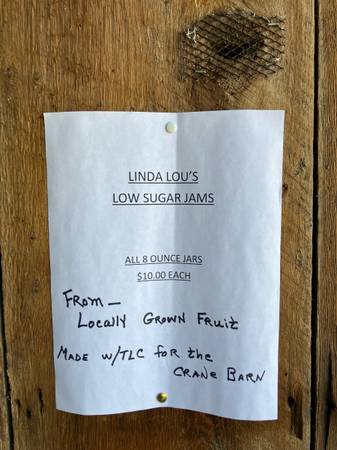 LINDA LOU'S
LOW SUGAR JAMS
ALL 8 OUNCE JARS
$10.00 EACH
FROM —
LOCALLY GROWN FRUIT
MADE W/TLC FOR the
CRANE BARN